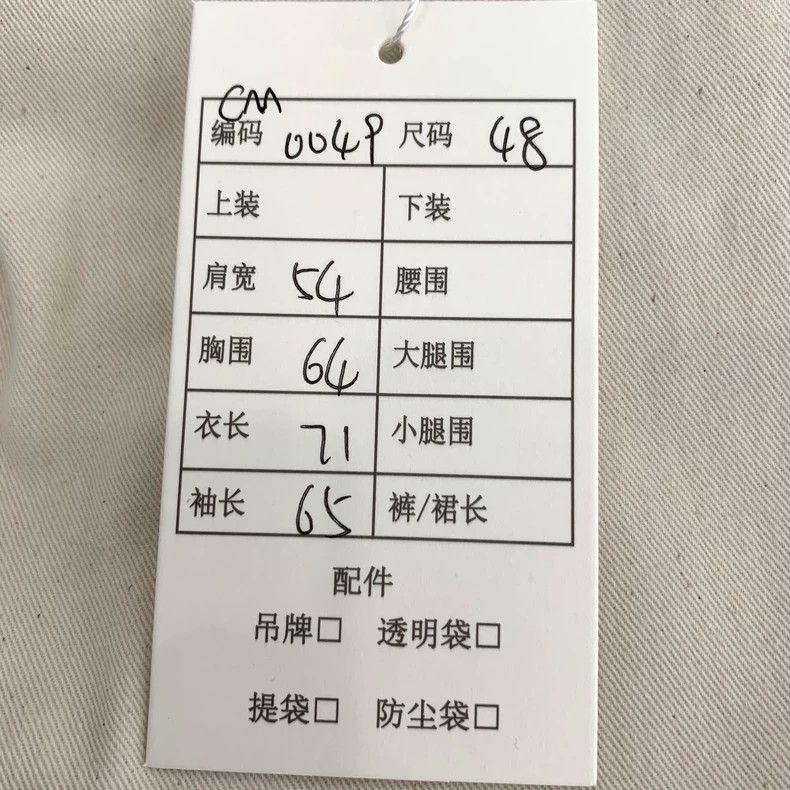 CM
编码 0049 尺码 48
上装 下装
肩宽 54 腰围
胸围 64 大腿围
衣长 71 小腿围
袖长 65 裤/裙长
配件
吊牌□ 透明袋□
提袋□ 防尘袋□